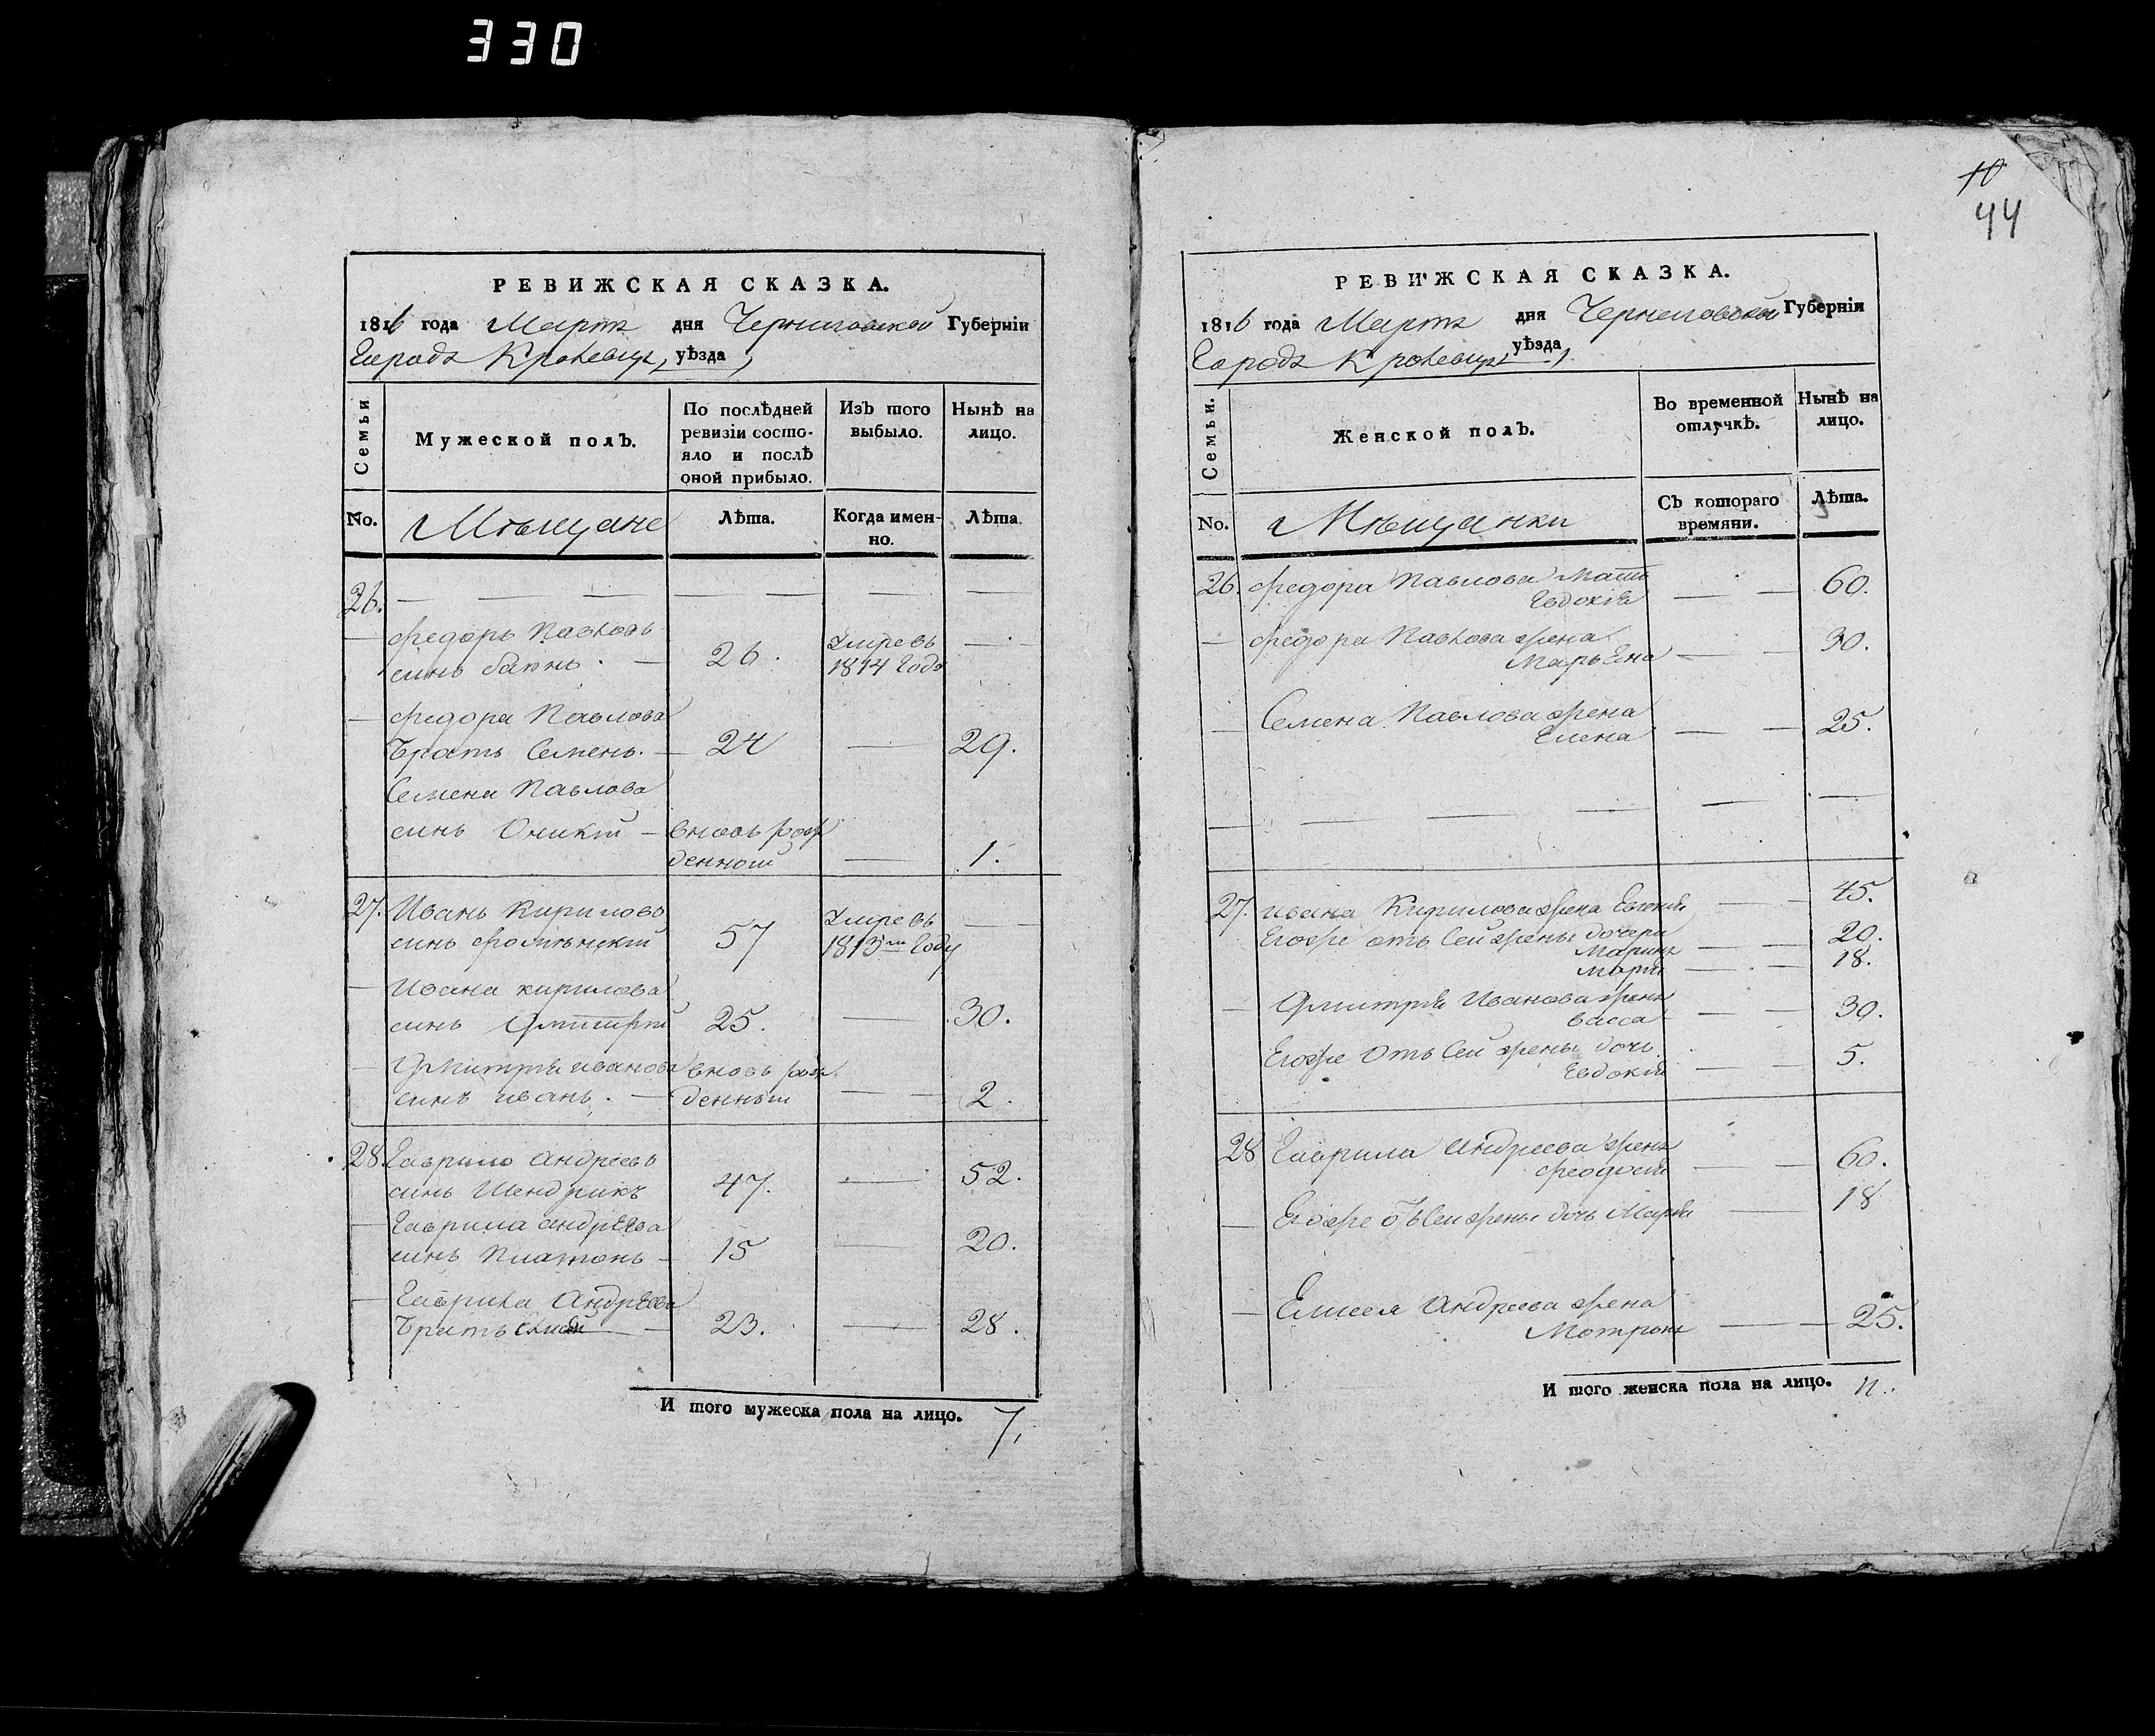 330
РЕВИЖСКАЯ СКАЗКА.
1816 года Марта дня Черниговской Губерніи
Города Кролевца, уѣзда
Семьи
Мужеской полъ.
По послѣдней ревизіи состо-
яло и послѣ
оной прибыло.
Изъ того
выбыло.
Нынѣ на
лицо.
No.
Мѣщане
Лѣта.
Когда имен-
но.
Лѣта
26.
Федоръ Павловъ
синъ 26. Умре въ
1814 Года
Федора Павлова
братъ Семенъ. 24 29.
Семена Павлова
синъ Оникій вновь рож
денной 1.
27. Иванъ Кириловъ
синъ 57 Умре въ
1813 Году
Ивана кирилова
синъ Дмитрій 25. 30.
Дмитрія иванова вновь рож.
синъ иванъ. денный 2.
28. Гаврило Андреевъ
синъ Шендрикъ 47. 52.
Гаврила андрѣева
синъ Платонъ 15 20.
Гаврила Андрѣева
братъ 23. 28.
И того мужеска пола на лицо. 7.
10
44
РЕВИЖСКАЯ СКАЗКА.
1816 года Марта дня Черниговской Губерніи
Города Кролевца уѣзда
Семьи.
Женской полъ.
Во временной
отлучкѣ.
Нынѣ на
лицо.
No.
Мѣщанки
Съ котораго
времяни.
Лѣта.
26. Федора Павлова мать
Евдокія 60.
Федора Павлова жена
Марьяна 30.
Семена Павлова жена
Елена 25.
27. ивана Кирилова жена Евгенія 45.
Егоже отъ Сей жены дочери
Марина 20.
Марія 18.
Дмитрія Иванова жена
Васса 30.
Егоже Отъ Сей жены дочь
Евдокія 5.
28 Гаврила Андреева жена
Феодосія 60.
Егоже отъ Сей жены дочь Марія 18
Елисея Андреева жена
Мотрона 25.
И того женска пола на лицо. 11.